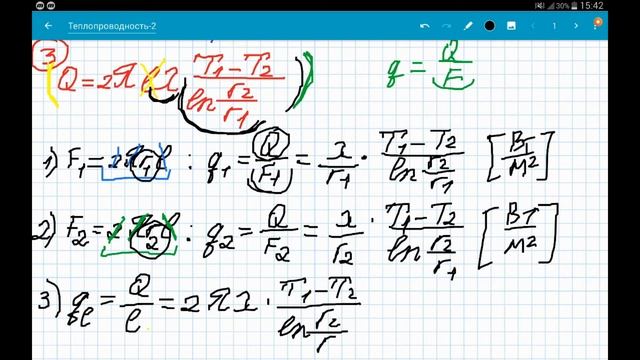 30% 15:42
Теплопроводность-2 1
3 Q = 2πlλ (T₁-T₂)/(ln r₂/r₁) q = Q/F
1) F₁ = 2πr₁l : q₁ = Q/F₁ = λ/r₁ · (T₁-T₂)/(ln r₂/r₁) [Вт/м²]
2) F₂ = 2πr₂l : q₂ = Q/F₂ = λ/r₂ · (T₁-T₂)/(ln r₂/r₁) [Вт/м²]
3) qₗ = Q/l = 2πλ · (T₁-T₂)/(ln r₂/r)